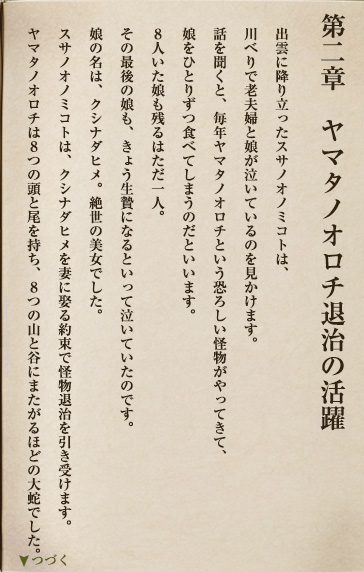 第二章　ヤマタノオロチ退治の活躍
出雲に降り立ったスサノオノミコトは、
川べりで老夫婦と娘が泣いているのを見かけます。
話を聞くと、毎年ヤマタノオロチという恐ろしい怪物がやってきて、
娘をひとりずつ食べてしまうのだといいます。
８人いた娘も残るはただ一人。
その最後の娘も、きょう生贄になるといって泣いていたのです。
娘の名は、クシナダヒメ。絶世の美女でした。
スサノオノミコトは、クシナダヒメを妻に娶る約束で怪物退治を引き受けます。
ヤマタノオロチは８つの頭と尾を持ち、８つの山と谷にまたがるほどの大蛇でした。
▼つづく